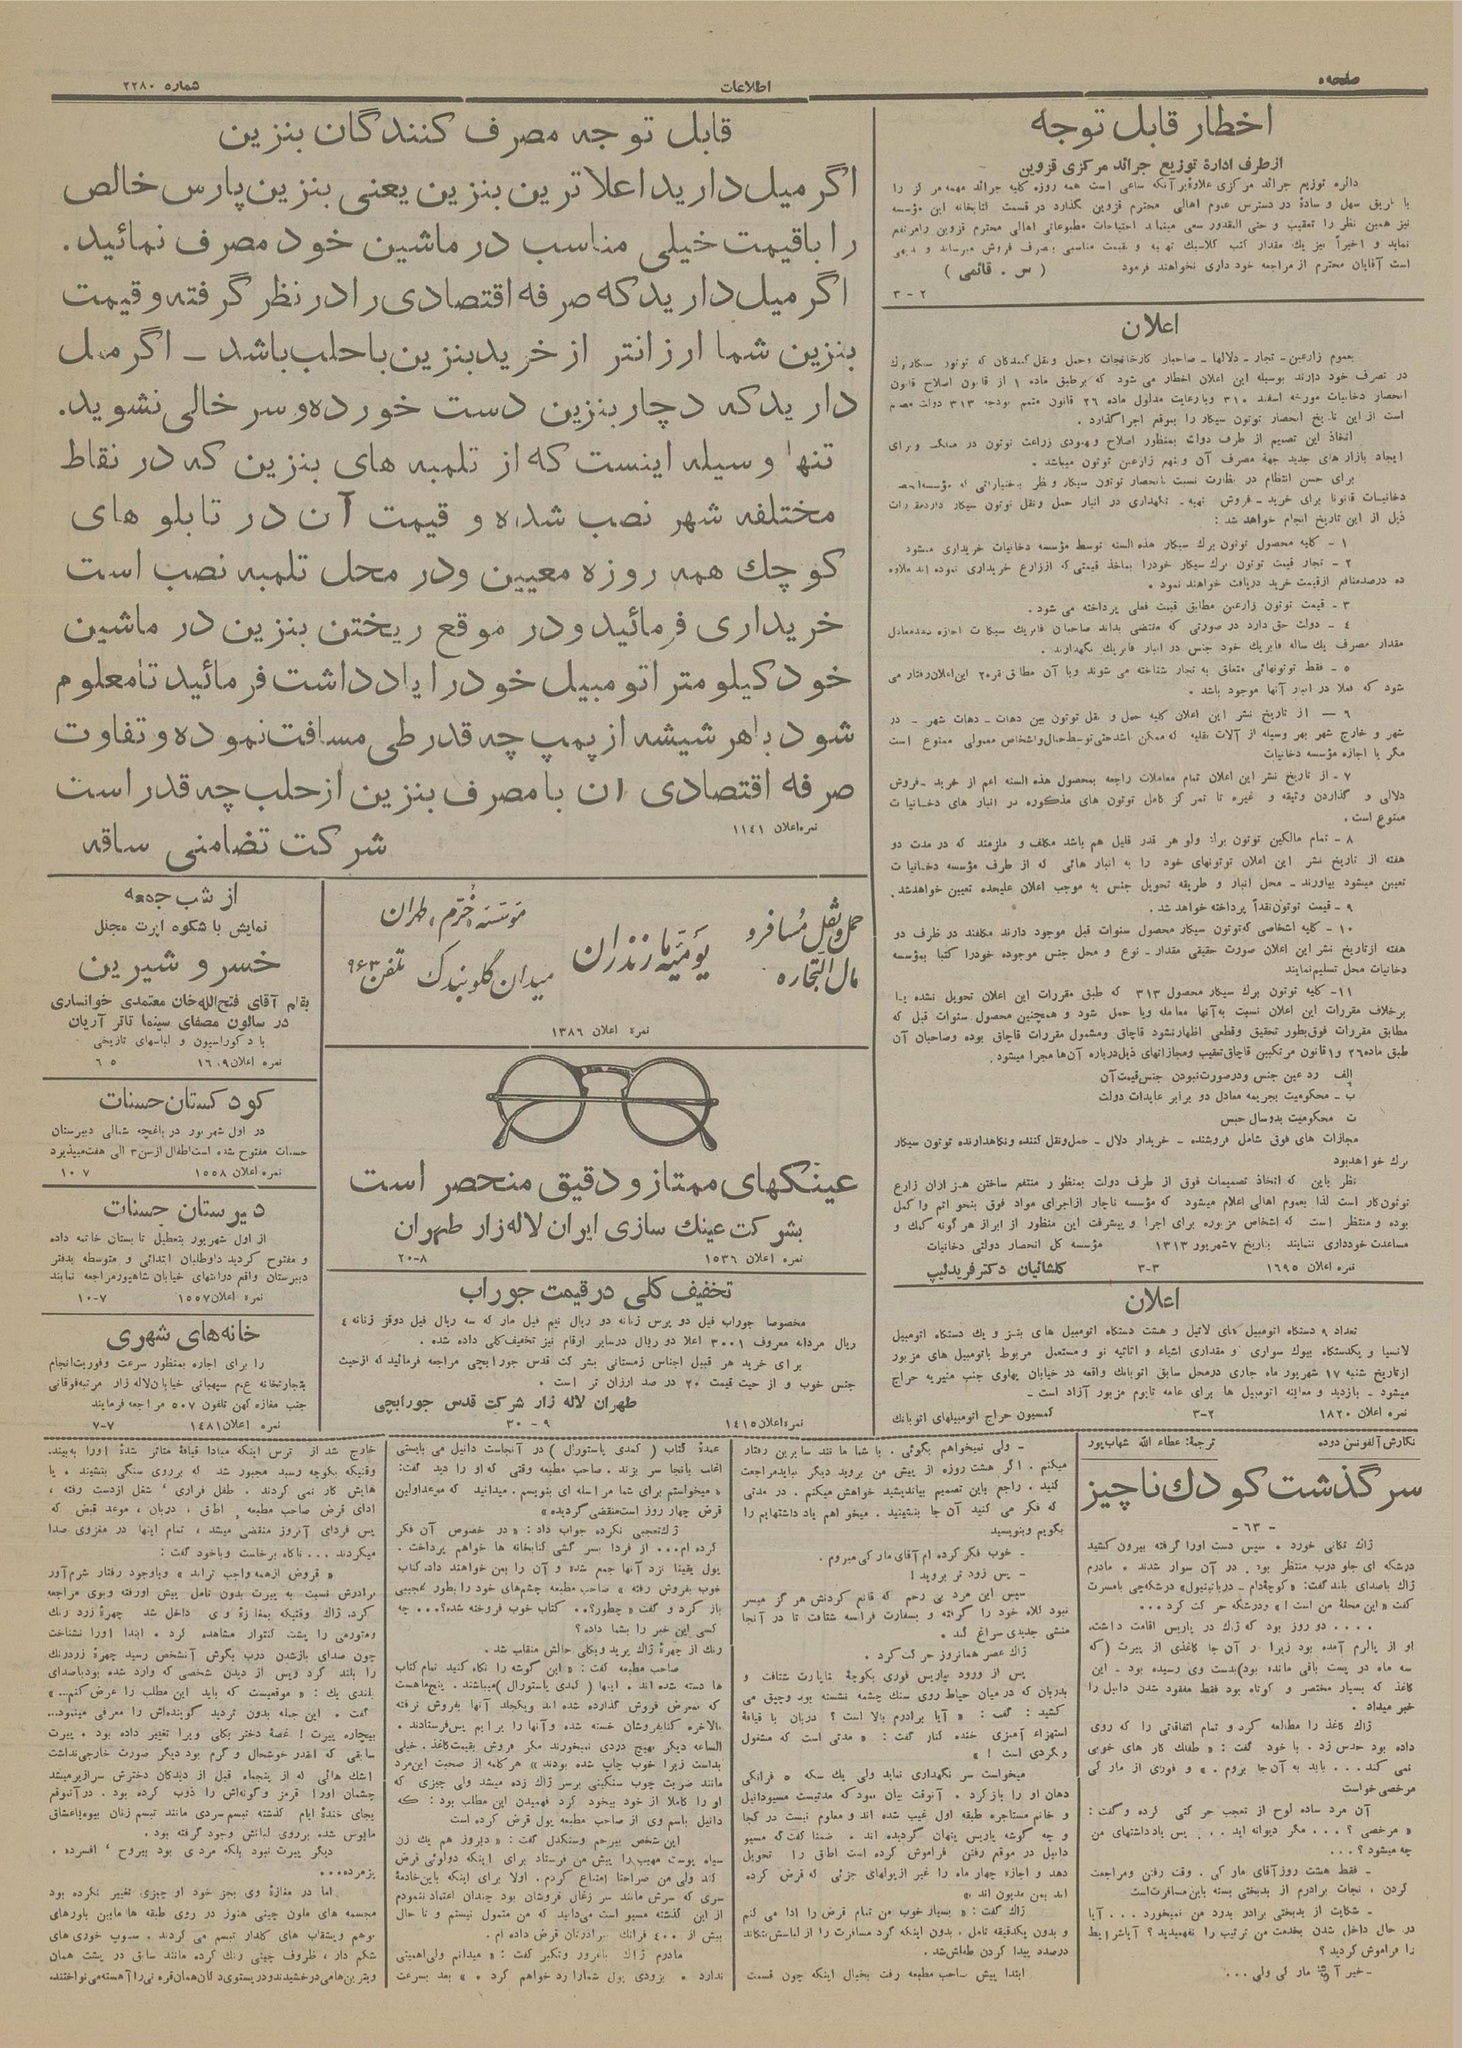 صفحه ۵
اطلاعات
شماره ۲۲۸۰
اخطار قابل توجه
از طرف ادارهٔ توزیع جرائد مرکزی قزوین
دائره توزیع جرائد مرکزی علاوه بر آنکه ساعی است همه روزه کلیه جرائد مهمه مرکز را
با طریق سهل و ساده در دسترس عموم اهالی محترم قزوین بگذارد در قسمت کتابخانه این مؤسسه
نیز همین نظر را تعقیب و حتی المقدور سعی مینماید احتیاجات مطبوعاتی اهالی محترم قزوین را مرتفع
نماید و اخیراً نیز یك مقدار کتب کلاسیك تهیه و بقیمت مناسبی بمصرف فروش میرساند و
است آقایان محترم از مراجعه خود داری نخواهند فرمود ( س . قائمی )
۲ - ۳
اعلان
بعموم زارعین - تجار - دلالها - صاحبان کارخانجات و حمل و نقل کنندگان که توتون سیگار برك
در تصرف خود دارند بوسیله این اعلان اخطار می شود که برطبق ماده ۱ از قانون اصلاح قانون
انحصار دخانیات مورخه اسفند ۳۱۰ و با رعایت مدلول ماده ۲۶ قانون متمم بودجه ۳۱۳ دولت مصمم
است از این تاریخ انحصار توتون سیگار را بموقع اجرا گذارد .
اتخاذ این تصمیم از طرف دولت بمنظور اصلاح و بهبودی زراعت توتون در مملکت و برای
ایجاد بازار های جدید جهة مصرف آن و بنفع زارعین توتون میباشد .
برای حسن انتظام در نظارت نسبت بانحصار توتون سیگار و نظر باختیاراتی که مؤسسه انحصار
دخانیات قانونا برای خرید - فروش تهیه - نگهداری در انبار حمل و نقل توتون سیگار دارد مقررات
ذیل از این تاریخ انجام خواهد شد :
۱ - کلیه محصول توتون برك سیگار هذه السنه توسط مؤسسه دخانیات خریداری میشود
۲ - تجار قیمت توتون برك سیگار خود را بماخذ قیمتی که از زارع خریداری نموده اند بعلاوه
ده درصد منافع از قیمت خرید دریافت خواهند نمود .
۳ - قیمت توتون زارعین مطابق قیمت فعلی پرداخته می شود .
۴ - دولت حق دارد در صورتی که مقتضی بداند صاحبان فابریك سیگارت اجازه دهد معادل
مقدار مصرف یك ساله فابریك خود جنس در انبار فابریك نگهدارند .
۵ - فقط توتونهائی متعلق به تجار شناخته می شوند و با آن مطابق فقره ۲ این اعلان رفتار می
شود که فعلا در انبار آنها موجود باشد .
۶ — از تاریخ نشر این اعلان کلیه حمل و نقل توتون بین دهات - دهات شهر - در
شهر و خارج شهر بهر وسیله از آلات نقلیه که ممکن باشد حتی توسط حمال و اشخاص معمولی ممنوع است
مگر با اجازه مؤسسه دخانیات
۷ - از تاریخ نشر این اعلان تمام معاملات راجعه بمحصول هذه السنه اعم از خرید - فروش
دلالی و گذاردن وثیقه و غیره تا تمرکز کامل توتون های مذکوره در انبار های دخانیات
ممنوع است .
۸ - تمام مالکین توتون برك ولو هر قدر قلیل هم باشد مکلف و ملزمند که در مدت دو
هفته از تاریخ نشر این اعلان توتونهای خود را به انبار هائی که از طرف مؤسسه دخانیات
تعیین میشود بیاورند - محل انبار و طریقه تحویل جنس به موجب اعلان علیحده تعیین خواهد شد .
۹ - قیمت توتون نقداً پرداخته خواهد شد .
۱۰ - کلیه اشخاصی که توتون سیگار محصول سنوات قبل موجود دارند مکلفند در ظرف دو
هفته از تاریخ نشر این اعلان صورت حقیقی مقدار - نوع و محل جنس موجوده خود را کتبا بمؤسسه
دخانیات محل تسلیم نمایند
۱۱ - کلیه توتون برك سیگار محصول ۳۱۳ که طبق مقررات این اعلان تحویل نشده یا
برخلاف مقررات این اعلان نسبت به آنها معامله و یا حمل شود و همچنین محصول سنوات قبل که
مطابق مقررات فوق بطور تحقیق و قطعی اظهار نشود قاچاق و مشمول مقررات قاچاق بوده و صاحبان آن
طبق ماده ۲۶ و ۱ قانون مرتکبین قاچاق تعقیب و مجازاتهای ذیل درباره آن ها مجرا میشود .
الف رد عین جنس و در صورت نبودن جنس قیمت آن
ب - محکومیت بجریمه معادل دو برابر عایدات دولت
ت محکومیت بدو سال حبس
مجازات های فوق شامل فروشنده - خریدار دلال - حمل و نقل کننده و نگاهدارنده توتون سیگار
برك خواهد بود
نظر باین که اتخاذ تصمیمات فوق از طرف دولت بمنظور منتفع ساختن هزاران زارع
توتون کار است لذا بعموم اهالی اعلام میشود که مؤسسه ناچار از اجرای مواد فوق بنحو اتم و اکمل
بوده و منتظر است که اشخاص مزبوره برای اجرا و پیشرفت این منظور از ابراز هر گونه کمك و
مساعدت خودداری ننمایند بتاریخ ۷ شهریور ۱۳۱۳ مؤسسه کل انحصار دولتی دخانیات
نمره اعلان ۱۶۹۵ ۳-۳ گلشائیان دکتر فریدلیپ
اعلان
تعداد ۹ دستگاه اتومبیل های لاتیل و هشت دستگاه اتومبیل های بنز و یك دستگاه اتومبیل
لانسیا و یکدستگاه بیوك سواری و مقداری اشیاء و اثاثیه نو و مستعمل مربوط باتومبیل های مزبور
از تاریخ شنبه ۱۷ شهریور ماه جاری در محل سابق اتوبانك واقعه در خیابان پهلوی جنب منیریه حراج
میشود - بازدید و معاینه اتومبیل ها برای عامه تا یوم مزبور آزاد است -
نمره اعلان ۱۸۲۰ ۲-۳ کمسیون حراج اتومبیلهای اتوبانك
قابل توجه مصرف کنندگان بنزین
اگر میل دارید اعلا ترین بنزین یعنی بنزین پارس خالص
را باقیمت خیلی مناسب در ماشین خود مصرف نمائید .
اگر میل دارید که صرفه اقتصادی را در نظر گرفته و قیمت
بنزین شما ارزانتر از خرید بنزین با حلب باشد - اگر میل
دارید که دچار بنزین دست خورده و سر خالی نشوید .
تنها وسیله اینست که از تلمبه های بنزین که در نقاط
مختلفه شهر نصب شده و قیمت آن در تابلو های
کوچك همه روزه معیین و در محل تلمبه نصب است
خریداری فرمائید و در موقع ریختن بنزین در ماشین
خود کیلو متر اتومبیل خود را یادداشت فرمائید تا معلوم
شود با هر شیشه از پمپ چه قدر طی مسافت نموده و تفاوت
صرفه اقتصادی آن با مصرف بنزین از حلب چه قدر است
نمره اعلان ۱۱۴۱
شرکت تضامنی ساقه
حمل و نقل مسافر و
مال التجاره
یومیه مازندران
موسسه محترم طهران
میدان گلوبندك تلفن ۹۶۳
نمره اعلان ۱۳۸۶
عینکهای ممتاز و دقیق منحصر است
بشرکت عینك سازی ایران لاله زار طهران
نمره اعلان ۱۵۳۶ ۸-۲۰
تخفیف کلی در قیمت جوراب
مخصوصا جوراب فیل دو پرس زنانه دو ریال نیم فیل مار که سه ریال فیل دو قز زنانه ۴
ریال مردانه معروف ۳۰۰۱ اعلا دو ریال در سایر ارقام نیز تخفیف کلی داده شده .
برای خرید هر قبیل اجناس زمستانی بشرکت قدس جورابچی مراجعه فرمائید که از حیث
جنس خوب و از حیث قیمت ۲۰ در صد ارزان تر است .
طهران لاله زار شرکت قدس جورابچی
نمره اعلان ۱۴۱۵ ۹ - ۳۰
از شب جمعه
نمایش با شکوه اپرت مجلل
خسرو شیرین
بقلم آقای فتح الله خان معتمدی خوانساری
در سالون مصفای سینما تاتر آریان
با دکوراسیون و لباسهای تاریخی
نمره اعلان ۱۶۰۹ ۵ ۶
کودکستان حسنات
در اول شهریور در باغچه شمالی دبیرستان
حسنات مفتوح شده است اطفال از سن ۳ الی هفت میپذیرد
نمره اعلان ۱۵۵۸ ۷ ۱۰
دبیرستان حسنات
از اول شهریور بتعطیل تابستان خاتمه داده
و مفتوح گردید داوطلبان ابتدائی و متوسطه بدفتر
دبیرستان واقع در انتهای خیابان شاهپور مراجعه نمایند
نمره اعلان ۱۵۵۷ ۷-۱۰
خانه های شهری
را برای اجاره بمنظور سرعت و فوریت انجام
بتجارتخانه ع.م سیهبانی خیابان لاله زار مرتبه فوقانی
جنب مغازه کهن تلفون ۵۰۷ مراجعه فرمایند
نمره اعلان ۱۴۸۱ ۷-۷
نگارش آلفونس دوده ترجمهٔ : عطاء الله شهاب پور
سرگذشت کودك ناچیز
- ۶۳ -
ژاك تکانی خورد . سپس دست اورا گرفته بیرون کشید
درشکه ای جلو درب منتظر بود . در آن سوار شدند . مادرم
ژاك باصدای بلند گفت : « کوچه دام - دربانینیول » درشکه چی بامسرت
گفت « این محلهٔ من است ! » و درشکه حرکت کرد ...
.... دو روز بود که ژاك در پاریس اقامت داشت .
او از پالرم آمده بود زیرا در آن جا کاغذی از پیرت (که
سه ماه در پست باقی مانده بود) بدست وی رسیده بود . این
کاغذ که بسیار مختصر و کوتاه بود فقط مفقود شدن دانیل را
خبر میداد .
ژاك کاغذ را مطالعه کرد و تمام اتفاقاتی را که روی
داده بود حدس زد . با خود گفت : « طفلك کار های خوبی
نمی کند ... باید به آن جا بروم . » و فوری از مارکی
مرخصی خواست
آن مرد ساده لوح از تعجب حرکتی کرده و گفت :
« مرخصی ؟ ... مگر دیوانه اید ... پس یادداشتهای من
چه میشود ؟ ...
- فقط هشت روز آقای مارکی . وقت رفتن و مراجعت
کردن ، نجات برادرم از بدبختی بسته باین مسافرت است
- شکایت از بدبختی برادر بدرد من نمیخورد .... آیا
در حال داخل شدن بخدمت من ترتیب را نفهمیدید ؟ آیا شرایط
را فراموش کردید ؟
- خیر آقای مارکی ولی ...
- ولی نمیخواهم بگوئی . با شما مانند سایرین رفتار
میکنم . اگر هشت روزه از پیش من بروید دیگر نباید مراجعت
کنید . راجع باین تصمیم بیاندیشید خواهش میکنم . در مدتی
که فکر می کنید آن جا بنشینید . میخواهم یادداشتهایم را
بگویم و بنویسید
- خوب فکر کرده ام آقای مارکی میروم .
- پس زود تر بروید !
سپس این مرد بی رحم که قانع کردنش هرگز میسر
نبود کلاه خود را گرفته و بسفارت فرانسه شتافت تا در آنجا
منشی جدیدی سراغ کند .
ژاك عصر همانروز حرکت کرد .
پس از ورود بپاریس فوری بکوچهٔ شتافت و
بدربان که در میان حیاط روی سنك چشمه نشسته بود و چپق می
کشید : گفت : « آیا برادرم بالا است ؟ دربان با قیافهٔ
استهزاء آمیزی خنده کنان گفت : « مدتی است که مشغول
ولگردی است ! »
میخواست سر نگهداری نماید ولی یك سکه ۵ فرانکی
دهان او را باز کرد . آنوقت بیان نمود که مدتیست مسیو دانیل
و خانم مستاجره طبقه اول غیب شده اند و معلوم نیست در کجا
و چه گوشه پاریس پنهان گردیده اند . ضمنا گفت که مسیو
دانیل در موقع رفتن فراموش کرده است اطاق را تحویل
دهد و اجاره چهار ماه را غیر از پولهای جزئی که قرض کرده
اند بمن مدیون اند »
ژاك گفت : « بسیار خوب من تمام قرض را ادا می کنم
و بدون یکدقیقه تامل ، بدون اینکه گرد مسافرت را از لباسش بتکاند
درصدد پیدا کردن طفلش شد .
ابتدا پیش صاحب مطبعه رفت بخیال اینکه چون قسمت
عمدهٔ کتاب ( کمدی پاستورال ) در آنجاست دانیل می بایستی
اغلب بآنجا سر بزند . صاحب مطبعه وقتی که او را دید گفت :
« میخواستم برای شما مراسله ای بنویسم . میدانید که موعد اولین
قرض چهار روز است منقضی گردیده »
ژاك تعجبی نکرده جواب داد : « در خصوص آن فکر
کرده ام ... از فردا بسر کشی کتابخانه ها خواهم پرداخت .
پول یقینا نزد آنها جمع شده و آن را بمن خواهند داد . کتاب
خوب بفروش رفته » صاحب مطبعه چشم های خود را بطور عجیبی
باز کرد و گفت « چطور ؟ .. کتاب خوب فروخته شده ؟ ... چه
کسی این خبر را بشما داده ؟
رنك از چهرهٔ ژاك پرید و بکلی حالش منقلب شد .
صاحب مطبعه گفت : « این گوشه را نگاه کنید تمام کتاب
ها دسته شده اند . اینها ( کمدی پاستورال ) میباشند . پنج ماهست
که بمعرض فروش گذارده شده اند و یکجلد آنها بفروش نرفته
بالاخره کتابفروشان خسته شده و آنها را برایم پس فرستادند .
الساعه دیگر بهیچ دردی نمیخورند مگر فروش بقیمت کاغذ . خیلی
بداست زیرا خوب چاپ شده بودند » هر کلمه از صحبت این مرد
مانند ضربت چوب سنگینی بر سر ژاك زده میشد ولی چیزی که
او را کاملا از خود بیخود کرد فهمیدن این مطلب بود : که
دانیل باسم وی از صاحب مطبعه پول قرض کرده است
این شخص بیرحم و سنگدل گفت : « دیروز هم یك زن
سیاه پوست مهیب را پیش من فرستاد برای اینکه دو لوئی قرض
کند ولی من صراحتا امتناع کردم . اولا برای اینکه باین خادمهٔ
سری که سرش مانند سر زغال فروشان بود چندان اعتماد ننمودم
از این گذشته مسیو است میدانید که من متمول نیستم و تا حال
بیش از ۴۰۰ فرانك ببرادرتان قرض داده ام .
مادرم ژاك باغرور و تکبر گفت : « میدانم ولی اهمیتی
ندارد . بزودی پول شمارا رد خواهم کرد . » بعد بسرعت
خارج شد از ترس اینکه مبادا قیافهٔ متاثر شدهٔ اورا به بینند .
وقتیکه بکوچه رسید مجبور شد که بر روی سنگی بنشیند . پا
هایش کار نمی کردند . طفل فراری ، شغل از دست رفته ،
ادای قرض صاحب مطبعه ، اطاق ، دربان ، موعد قبض که
پس فردای آنروز منقضی میشد ، تمام اینها در مغزوی صدا
میکردند ... ناگاه برخاست و باخود گفت :
« قروض از همه واجب ترند » و باوجود رفتار شرم آور
برادرش نسبت به پیرت بدون تامل پیش اورفته و بوی مراجعه
کرد . ژاك وقتیکه بمغازه وی داخل شد چهرهٔ زرد رنك
و متورمی را پشت کنتوار مشاهده کرد . ابتدا اورا نشناخت
چون صدای باز شدن درب بگوش آنشخص رسید چهرهٔ زردرنك
را بلند کرد و پس از دیدن شخصی که وارد شده بود باصدای
بلندی یك : « موقعیست که باید این مطلب را عرض کنم ... »
گفت . این جمله بدون تردید گوینده اش را معرفی مینمود ...
بیچاره پیرت ! غصهٔ دختر بکلی ویرا تغییر داده بود . پیرت
سابقی که آنقدر خوشحال و گرم بود دیگر صورت خارجی نداشت
اشك هائی که از پنجماه قبل از دیدگان دخترش سرازیر میشد
چشمان اورا قرمز و گونه اش را ذوب کرده بود . در آنموقع
بجای خندهٔ ایام گذشته تبسم سردی مانند تبسم زنان بیوه یا عشاق
مایوس شده بر روی لبانش وجود گرفته بود .
دیگر پیرت نبود بلکه مردی بود بیروح ، افسرده .
پژمرده ...
اما در مغازهٔ وی بجز خود او چیزی تغییر نکرده بود
مجسمه های ملون چینی هنوز در روی طبقه ها مابین بلورهای
بوهم و بشقاب های گلدار تبسم می کردند . سوپ خوری های
شکم دار ، ظروف چینی رنك کرده مانند سابق در پشت همان
ویترین ها می درخشیدند و در پستوی دکان همان قره نی را آهسته می نواختند .